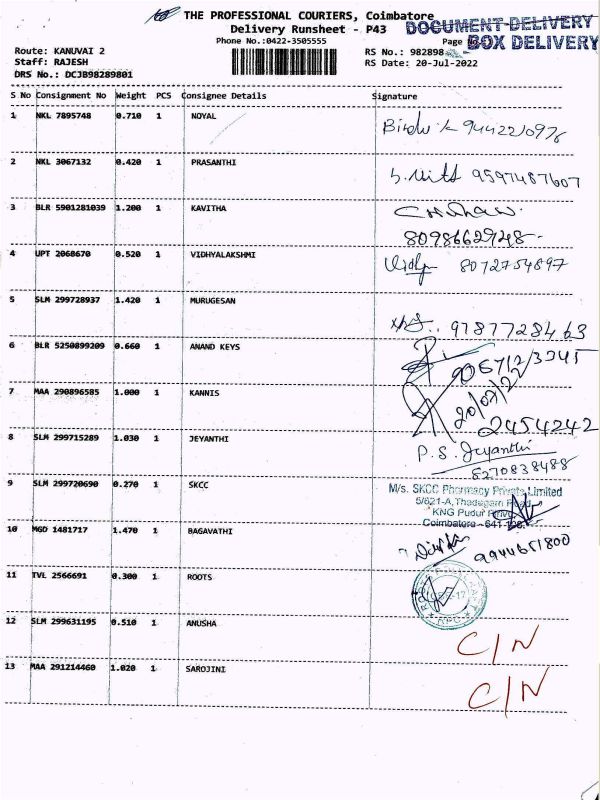 THE PROFESSIONAL COURIERS, Coimbatore
DOCUMENT DELIVERY
Delivery Runsheet - P43
Page No
BOX DELIVERY
Phone No.:0422-3505555
Route: KANUVAI 2
RS No.: 982898
Staff: RAJESH
RS Date: 20-Jul-2022
DRS No.: DCJB98289801
S No Consignment No Weight PCS Consignee Details Signature
1 NKL 7895748 0.710 1 NOYAL
2 NKL 3067132 0.420 1 PRASANTHI 9597487607
3 BLR 5901281039 1.200 1 KAVITHA
80986629248
4 UPT 2068670 0.520 1 VIDHYALAKSHMI 8072754897
5 SLM 299728937 1.420 1 MURUGESAN 9787728463
6 BLR 5250899209 0.660 1 ANAND KEYS
20/07/22
7 MAA 290896585 1.000 1 KANNIS 2454242
8 SLM 299715289 1.030 1 JEYANTHI P. S. Jeyanthi
8270838488
9 SLM 299720690 0.270 1 SKCC M/s. SKCC Pharmacy Private Limited
5/621-A, Thadagam Road,
KNG Pudur
Coimbatore - 641
10 MGD 1481717 1.470 1 BAGAVATHI 9944651800
11 TVL 2566691 0.300 1 ROOTS
12 SLM 299631195 0.510 1 ANUSHA C/N
13 MAA 291214460 1.020 1 SAROJINI C/N